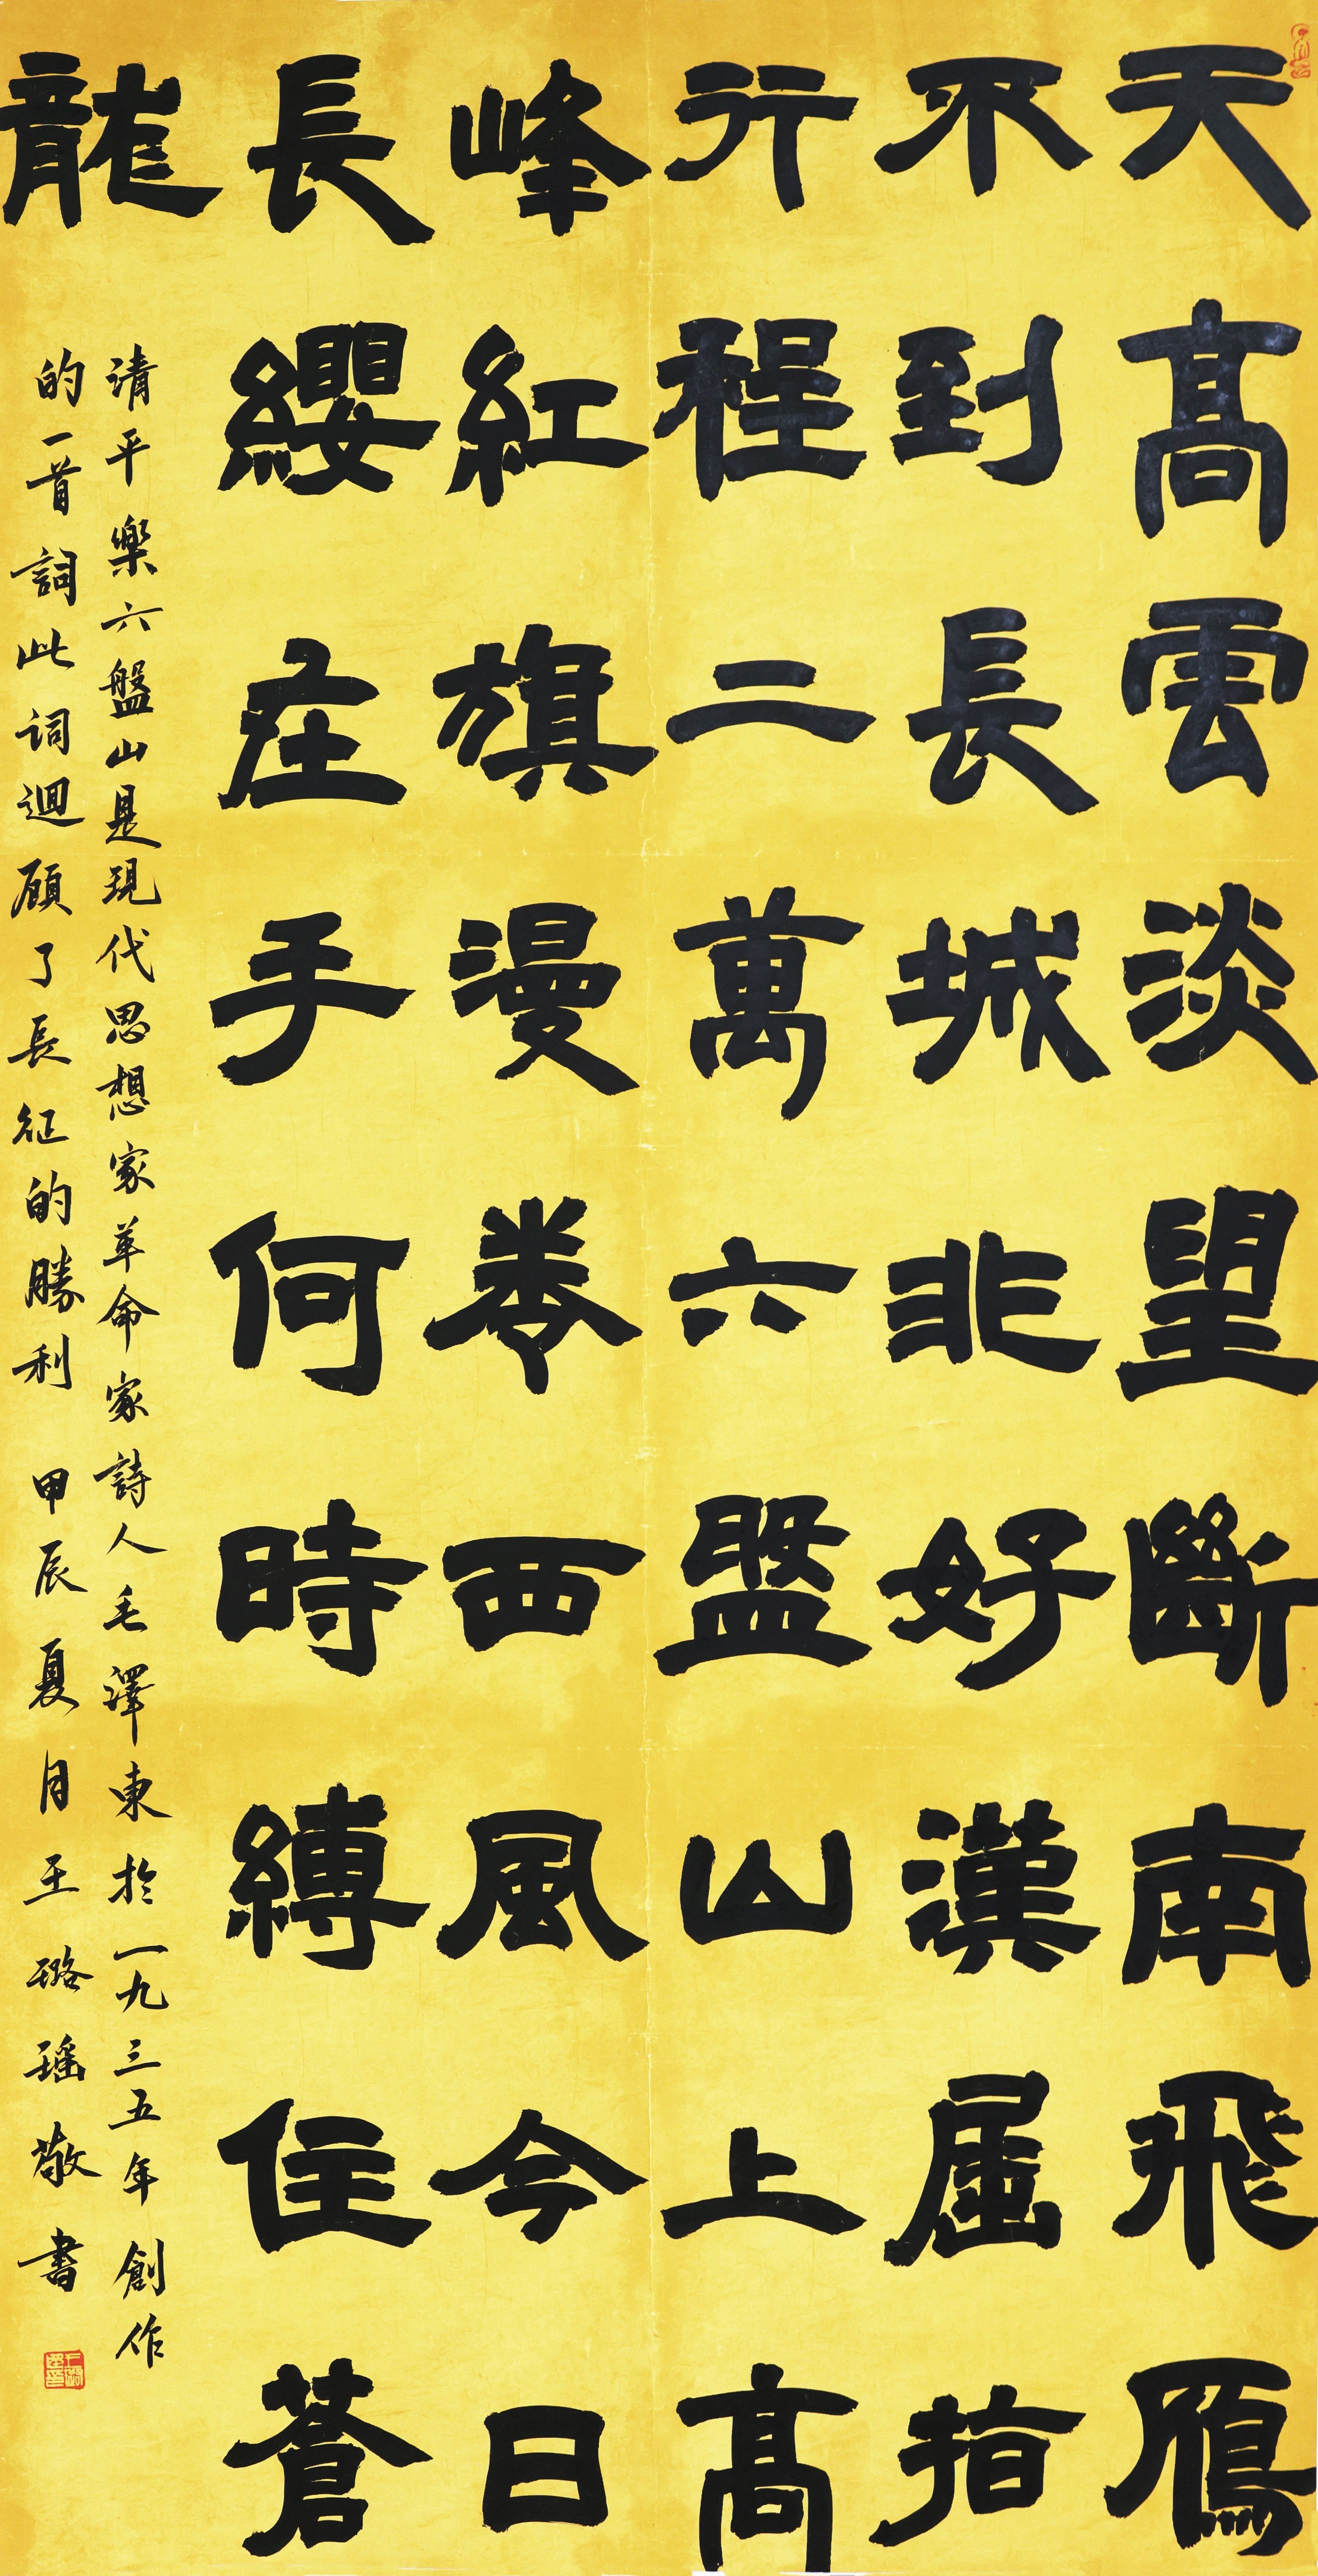 天高雲淡望斷南飛雁
不到長城非好漢屈指
行程二萬六盤山上高
峰紅旗漫卷西風今日
長纓在手何時縛住蒼
龍
清平樂六盤山是現代思想家革命家詩人毛澤東於一九三五年創作
的一首詞此词迴顾了長征的勝利 甲辰夏月王璐瑶敬書